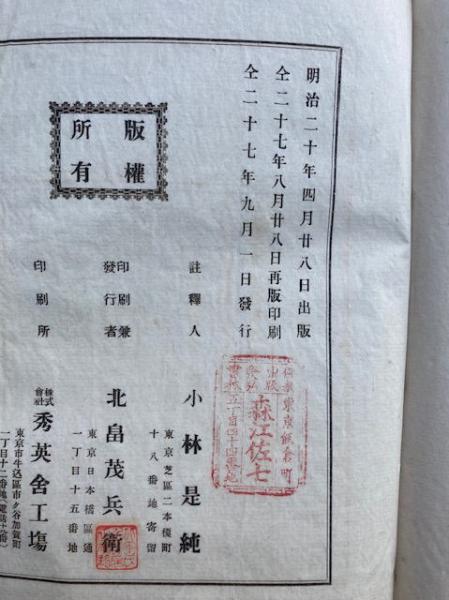 明治二十年四月廿八日出版
仝二十七年八月廿八日再版印刷
仝二十七年九月一日發行
版權
所有
註釋人
小林是純
東京芝區二本榎町
十八番地寄留
印刷兼
發行者
北畠茂兵衛
東京日本橋區通
一丁目十五番地
印刷所
株式
會社
秀英舍工塲
東京市牛込區市ヶ谷加賀町
一丁目十二番地
東京飯倉町
森江佐七